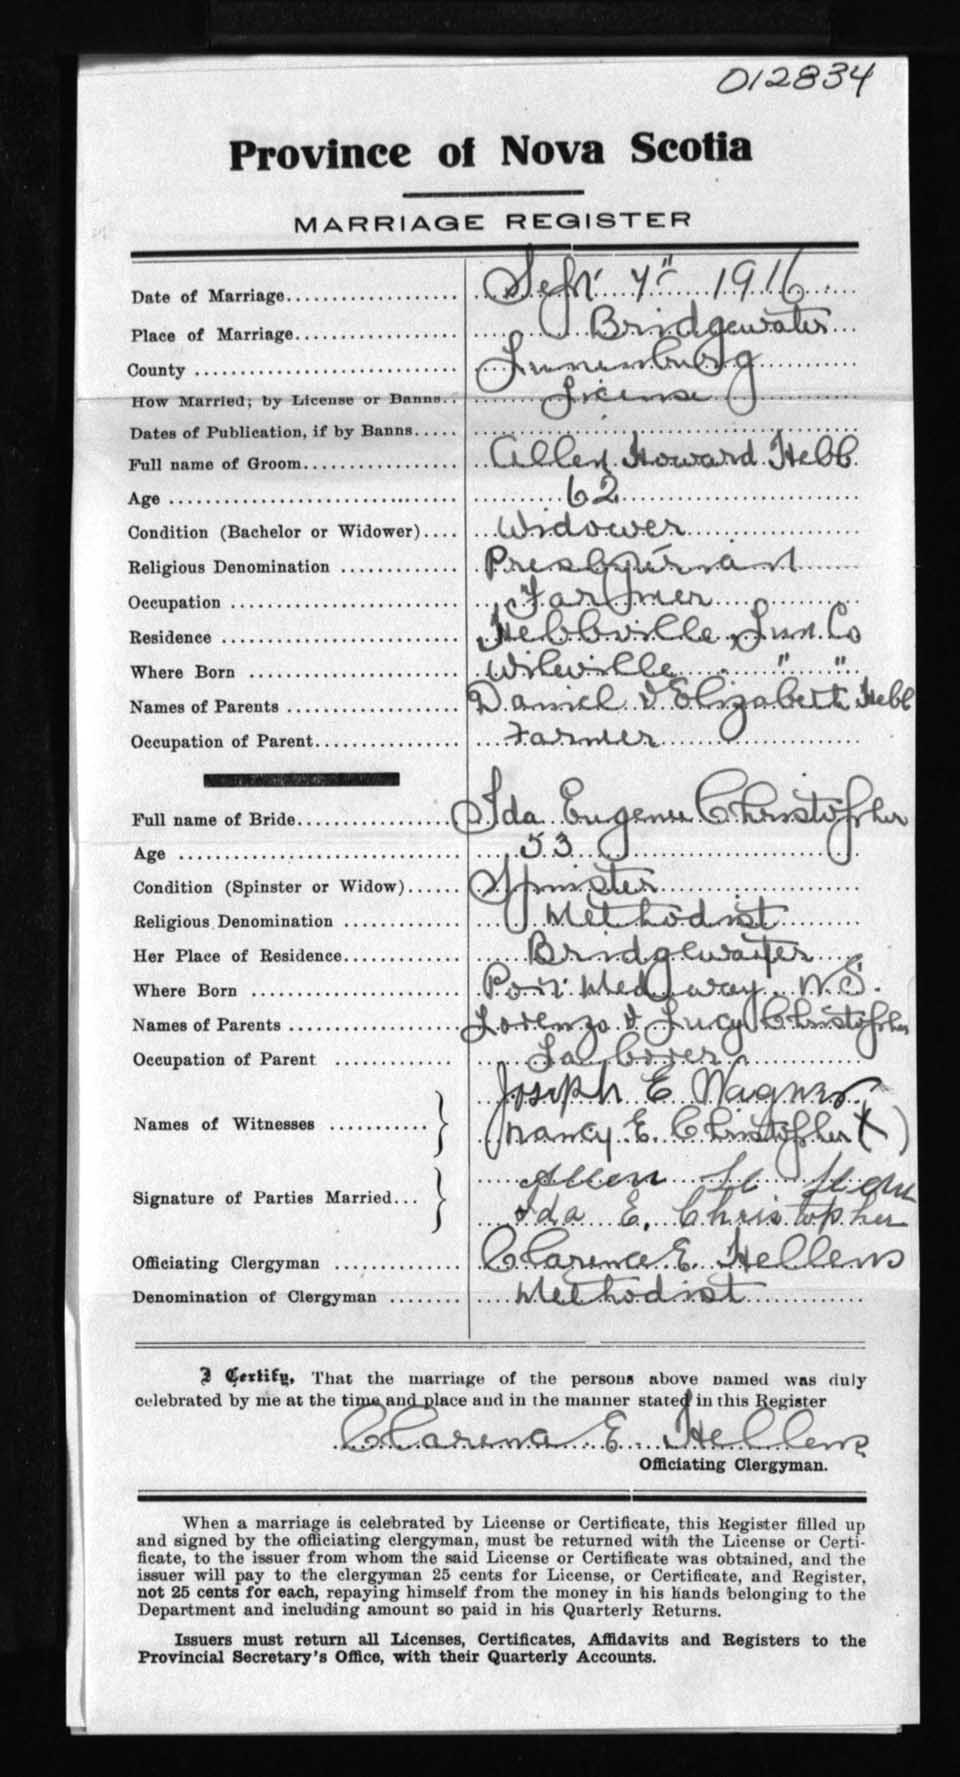 012834
Province of Nova Scotia
MARRIAGE REGISTER
Date of Marriage.................. Sept 7th 1916
Place of Marriage.................. Bridgewater
County .................. Lunenburg
How Married; by License or Banns.. License
Dates of Publication, if by Banns.....
Full name of Groom.................. Allen Howard Hebb
Age .................. 62
Condition (Bachelor or Widower).... Widower
Religious Denomination ............ Presbyterian
Occupation .................. Farmer
Residence .................. Hebbville, Lun. Co
Where Born .................. Wileville " "
Names of Parents .................. Daniel & Elizabeth Hebb
Occupation of Parent............... Farmer
Full name of Bride................ Ida Eugenie Christopher
Age .................. 53
Condition (Spinster or Widow)...... Spinster
Religious Denomination ............ Methodist
Her Place of Residence............ Bridgewater
Where Born .................. Port Medway N.S.
Names of Parents .................. Lorenzo & Lucy Christopher
Occupation of Parent ............ Labourer
Names of Witnesses ........... } Joseph E Wagner
Nancy E. Christopher (X)
Signature of Parties Married... } Allen H Hebb
Ida E. Christopher
Officiating Clergyman ............. Clarence E. Hellens
Denomination of Clergyman ........ Methodist
I Certify, That the marriage of the persons above named was duly
celebrated by me at the time and place and in the manner stated in this Register
Clarence E. Hellens
Officiating Clergyman.
When a marriage is celebrated by License or Certificate, this Register filled up
and signed by the officiating clergyman, must be returned with the License or Certi-
ficate, to the issuer from whom the said License or Certificate was obtained, and the
issuer will pay to the clergyman 25 cents for License, or Certificate, and Register,
not 25 cents for each, repaying himself from the money in his hands belonging to the
Department and including amount so paid in his Quarterly Returns.
Issuers must return all Licenses, Certificates, Affidavits and Registers to the
Provincial Secretary's Office, with their Quarterly Accounts.